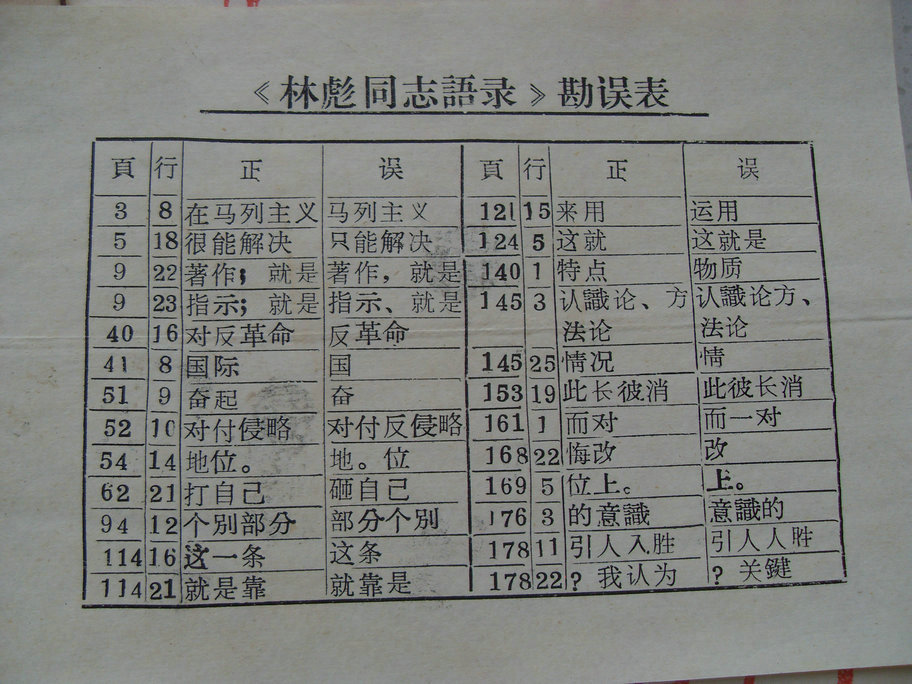 《林彪同志語录》勘误表
頁 行 正 误
3 8 在马列主义 马列主义
5 18 很能解决 只能解决
9 22 著作；就是 著作，就是
9 23 指示；就是 指示、就是
40 16 对反革命 反革命
41 8 国际 国
51 9 奋起 奋
52 10 对付侵略 对付反侵略
54 14 地位。 地。位
62 21 打自己 砸自己
94 12 个别部分 部分个別
114 16 这一条 这条
114 21 就是靠 就靠是
頁 行 正 误
121 15 来用 运用
124 5 这就 这就是
140 1 特点 物质
145 3 认識论、方 认識论方、
法论 法论
145 25 情况 情
153 19 此长彼消 此彼长消
161 1 而对 而一对
168 22 悔改 改
169 5 位上。 上。
176 3 的意識 意識的
178 11 引人入胜 引人人胜
178 22 ？我认为 ？关鍵